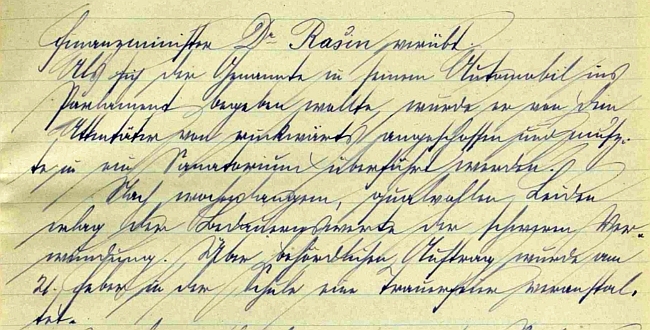 Finanzminister Dr. Rašin verübt.
Als sich der Genannte in seinem Automobil ins
Parlament begeben wollte, wurde er von dem
Attentäter von rückwärts angeschossen und muß-
te in ein Sanatorium überführt werden.
Nach wochenlangem, qualvollen Leiden
erlag der Bedauernswerte der schweren Ver-
wundung. Über behördlichen Auftrag wurde am
21. Feber in der Schule eine Trauerfeier veranstal-
tet.